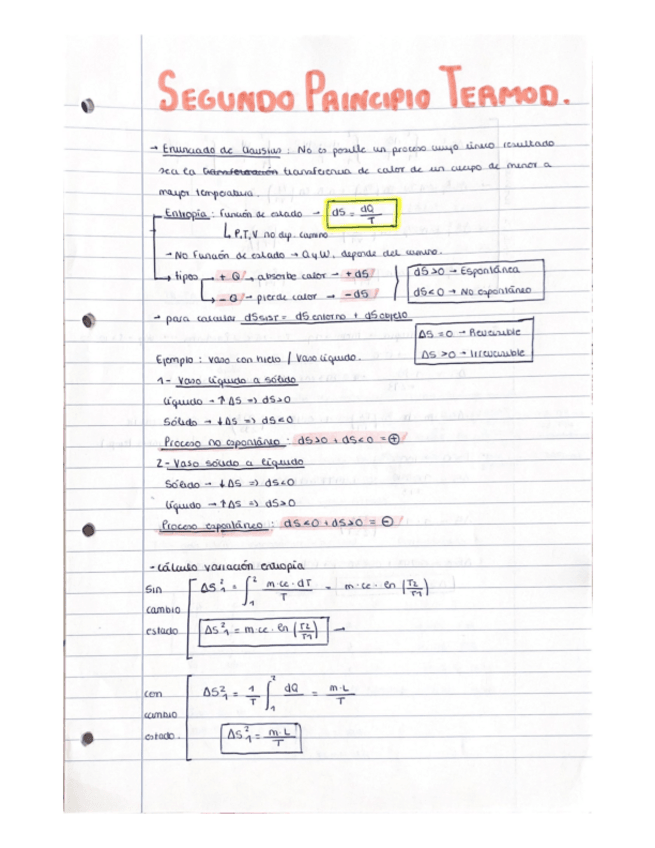 SEGUNDO PRINCIPIO TERMOD.
→ Enunciado de Clausius: No es posible un proceso cuyo único resultado
sea la transferencia de calor de un cuerpo de menor a
mayor temperatura.
Entropía: Función de estado → dS = dQ/T
↳ P,T,V no dep. camino
→ No Función de estado → Q y W, depende del camino.
→ tipos → + Q → absorbe calor → + dS
→ - Q → pierde calor → - dS
dS>0 → Espontánea
dS<0 → No espontáneo
→ para calcular dSsist = dS entorno + dS objeto
ΔS = 0 → Reversible
ΔS > 0 → Irreversible
Ejemplo: vaso con hielo / vaso líquido.
1- Vaso líquido a sólido
líquido → ↑ΔS => dS>0
Sólido → ↓ΔS => dS<0
Proceso no espontáneo: dS>0 + dS<0 = ⊕
2- Vaso sólido a líquido
Sólido → ↓ΔS => dS<0
líquido → ↑ΔS => dS>0
Proceso espontáneo: dS<0 + dS>0 = ⊖
- cálculo variación entropía
Sin cambio estado
ΔS²₁ = ∫₁² m·ce·dT/T = m·ce·ln(T2/T1)
ΔS²₁ = m·ce·ln(T2/T1) →
con cambio estado.
ΔS²₁ = 1/T ∫₁² dQ = m·L/T
ΔS²₁ = m·L/T